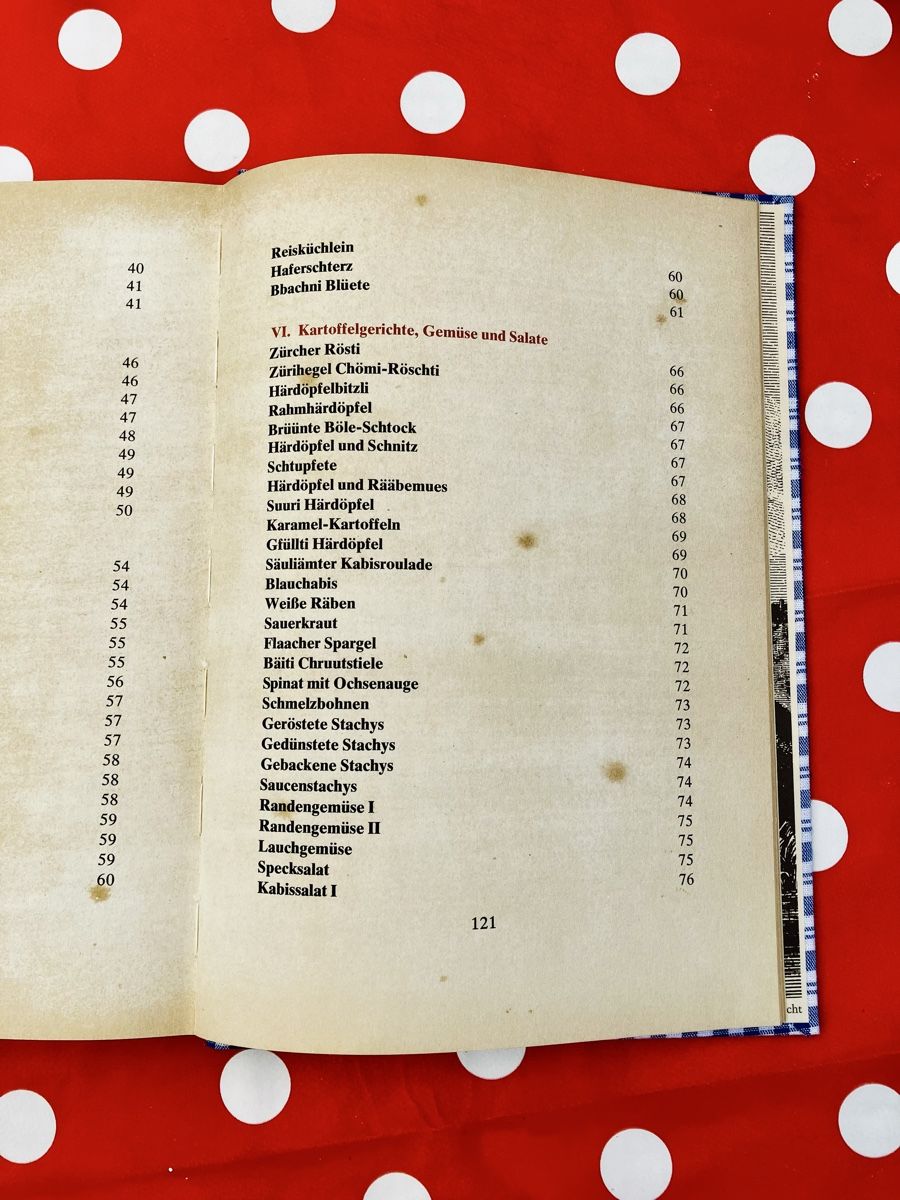 40
41
41
46
46
47
47
48
49
49
49
50
54
54
54
55
55
55
56
57
57
57
58
58
58
59
59
59
60
Reisküchlein 60
Haferschterz 60
Bbachni Blüete 61
VI. Kartoffelgerichte, Gemüse und Salate
Zürcher Rösti 66
Zürihegel Chömi-Röschti 66
Härdöpfelbitzli 66
Rahmhärdöpfel 67
Brüünte Böle-Schtock 67
Härdöpfel und Schnitz 67
Schtupfete 67
Härdöpfel und Rääbemues 68
Suuri Härdöpfel 68
Karamel-Kartoffeln 69
Gfüllti Härdöpfel 69
Säuliämter Kabisroulade 70
Blauchabis 70
Weiße Räben 71
Sauerkraut 71
Flaacher Spargel 72
Bäiti Chruutstiele 72
Spinat mit Ochsenauge 72
Schmelzbohnen 73
Geröstete Stachys 73
Gedünstete Stachys 73
Gebackene Stachys 74
Saucenstachys 74
Randengemüse I 74
Randengemüse II 75
Lauchgemüse 75
Specksalat 75
Kabissalat I 76
121
cht